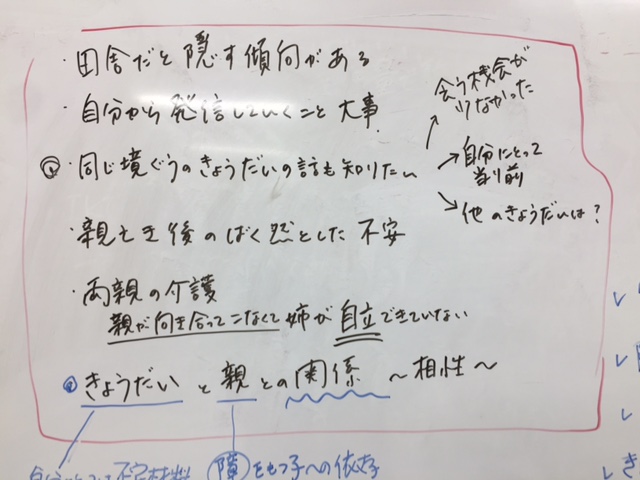 ・田舎だと隠す傾向がある
・自分から発信していくこと大事
◎同じ境ぐうのきょうだいの話も知りたい
会う機会が
少なかった
→自分にとって
当り前
他のきょうだいは?
・親亡き後のばく然とした不安
・両親の介護
親が向き合ってこなくて姉が自立できていない
きょうだいと親との関係 ~相性~
障をもつ子への依存